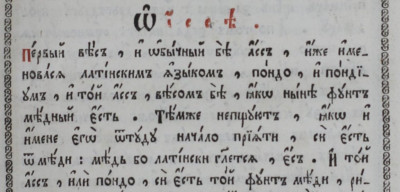 Ѿ а҆́ссѣ .
Пе́рвый вѣ́съ , и҆ ѡ҆бы́чный бѣ̀ а҆́ссъ , и҆́же и҆ме-
нова́лсѧ лати́нскимъ ѧ҆зы́комъ , по́ндо , и҆ пондїꙋ-
ꙋмъ , и҆ то́й а҆́ссъ , вѣ́сомъ бѣ̀ , ꙗ҆́кѡ ны́нѣ фꙋ́нтъ
мѣ́дный є҆́сть . Тѣ́мже непщꙋ́ютъ , ꙗ҆́кѡ и҆
и҆́мене є҆гѡ̀ ѿтꙋ́дꙋ нача́ло прїѧ́ти , сѝ є҆́сть
ѿ мѣ́ди : мѣ́дь бо лати́нски гл҃етсѧ , є҆́съ . И҆ то́й
а҆́ссъ , и҆лѝ по́ндо , сѝ є҆́сть то́й фꙋ́нтъ мѣ́ди , ри-